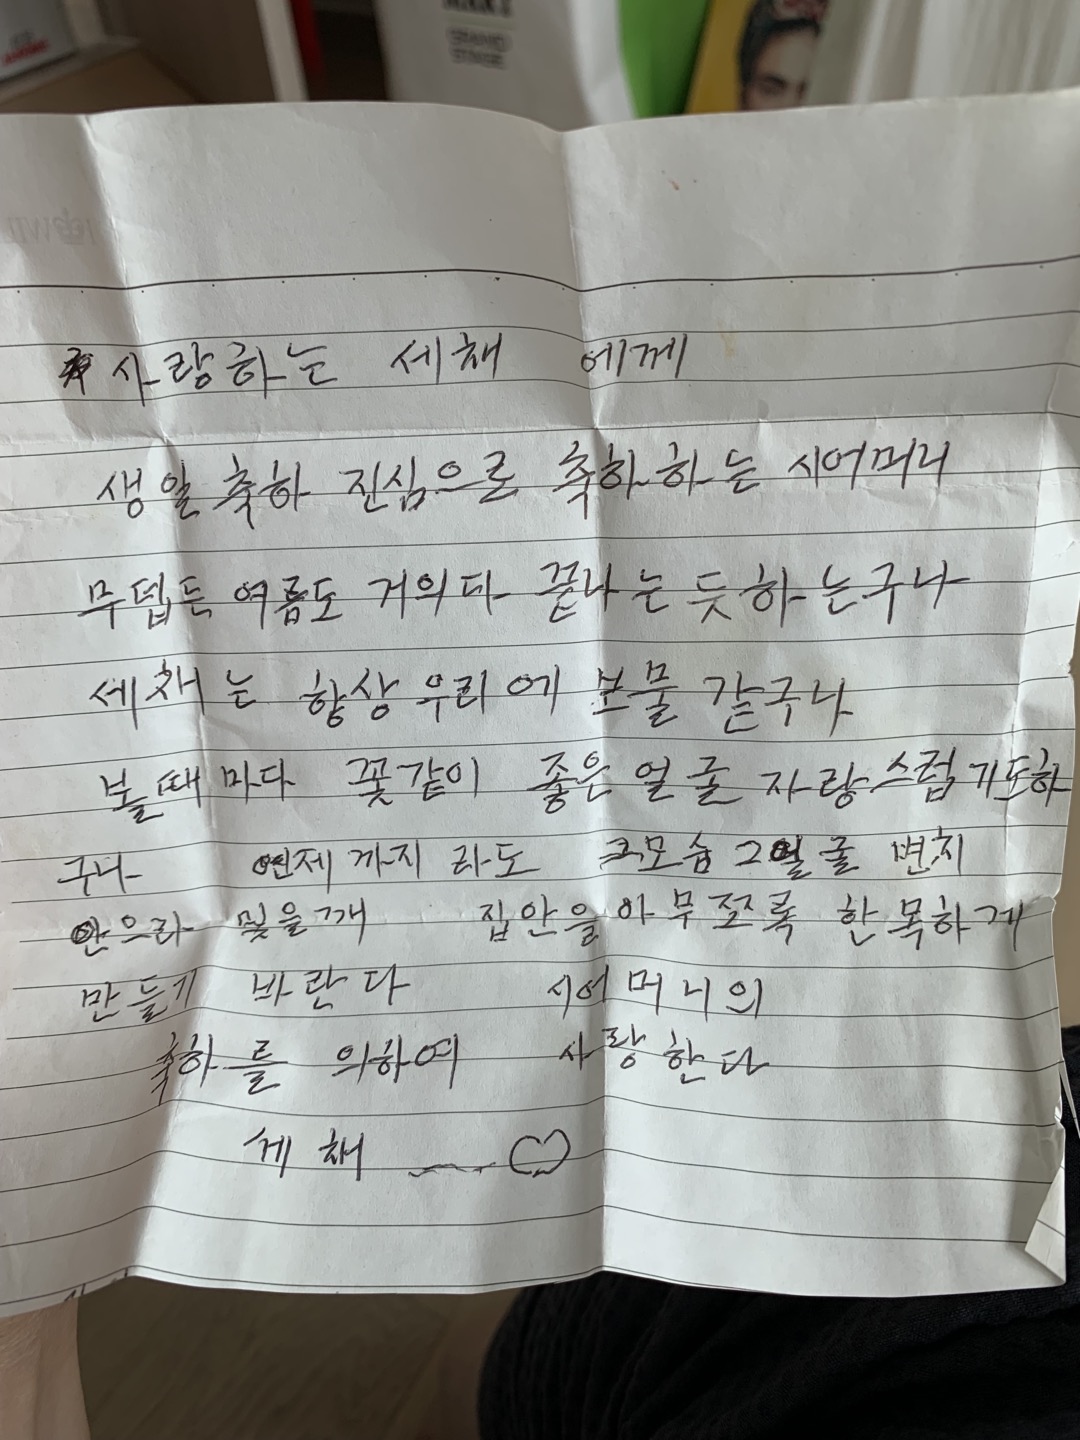 MARI
GRAND
STAGE
사랑하는 세채 에게
생일 축하 진심으로 축하하는 시어머니
무덥든 여름도 거의다 끝나는 듯하는구나
세채는 항상 우리에 보물 같구나
볼때마다 꽃같이 좋은 얼굴 자랑스럽기도하
구나 언제까지라도 그모습 그얼굴 변치
안으리라 믿을깨 집안을 아무쪼록 한목하게
만들기 바란다 시어머니의
축하를 의하여 사랑한다
세채